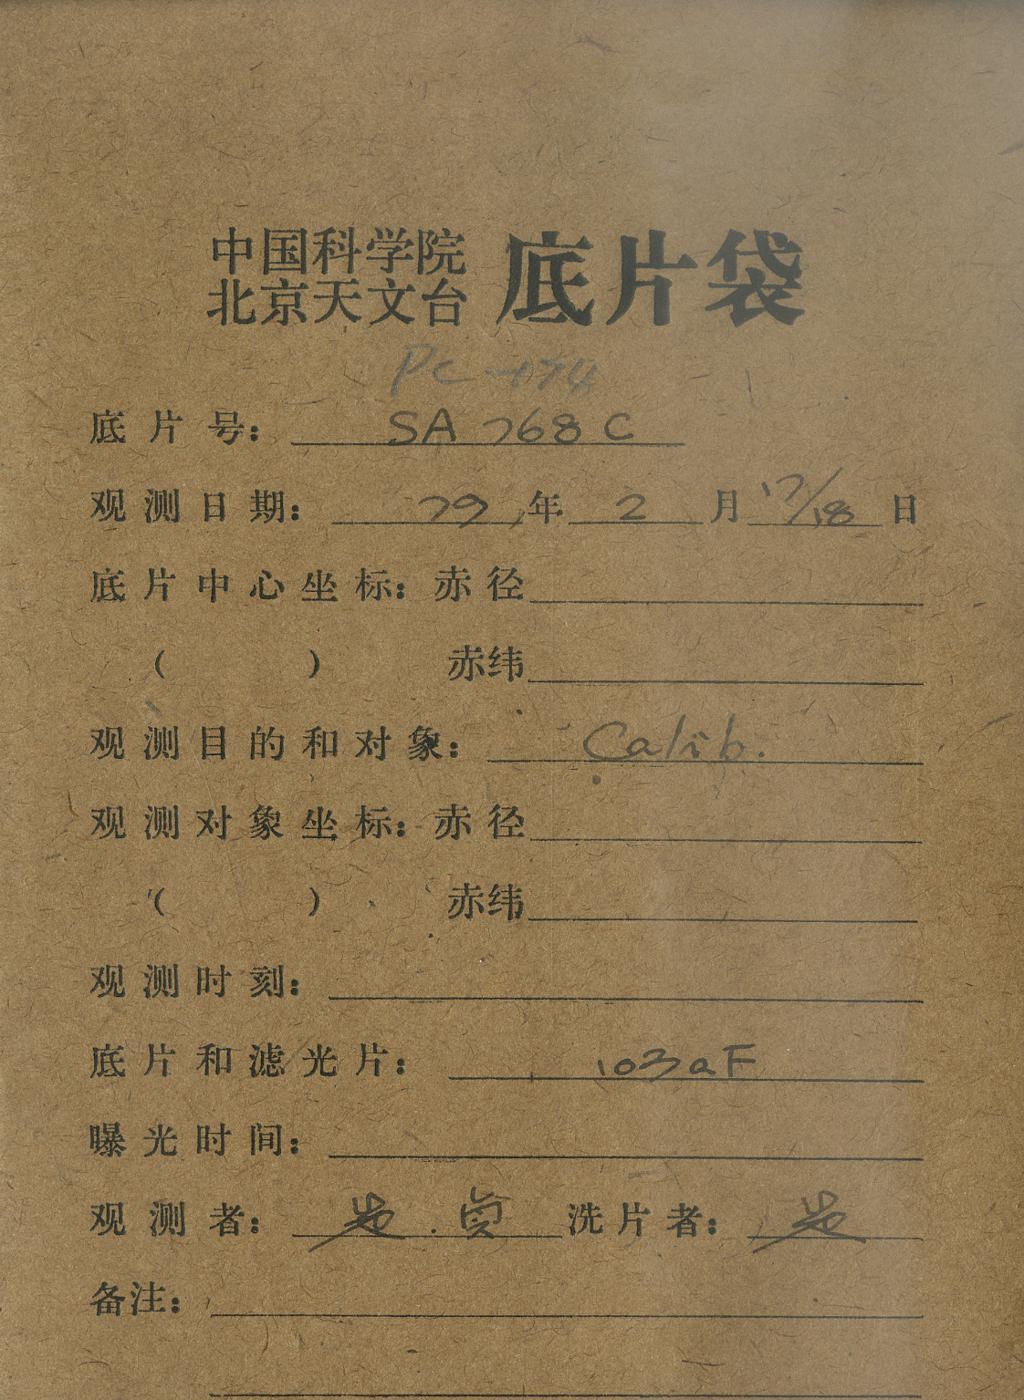 中国科学院
北京天文台 底片袋
底片号: SA 768 C
观测日期: 79年 2 月 17/18 日
底片中心坐标: 赤径
( ) 赤纬
观测目的和对象: Calib.
观测对象坐标: 赤径
( ) 赤纬
观测时刻:
底片和滤光片: 103aF
曝光时间:
观测者: 洗片者:
备注: